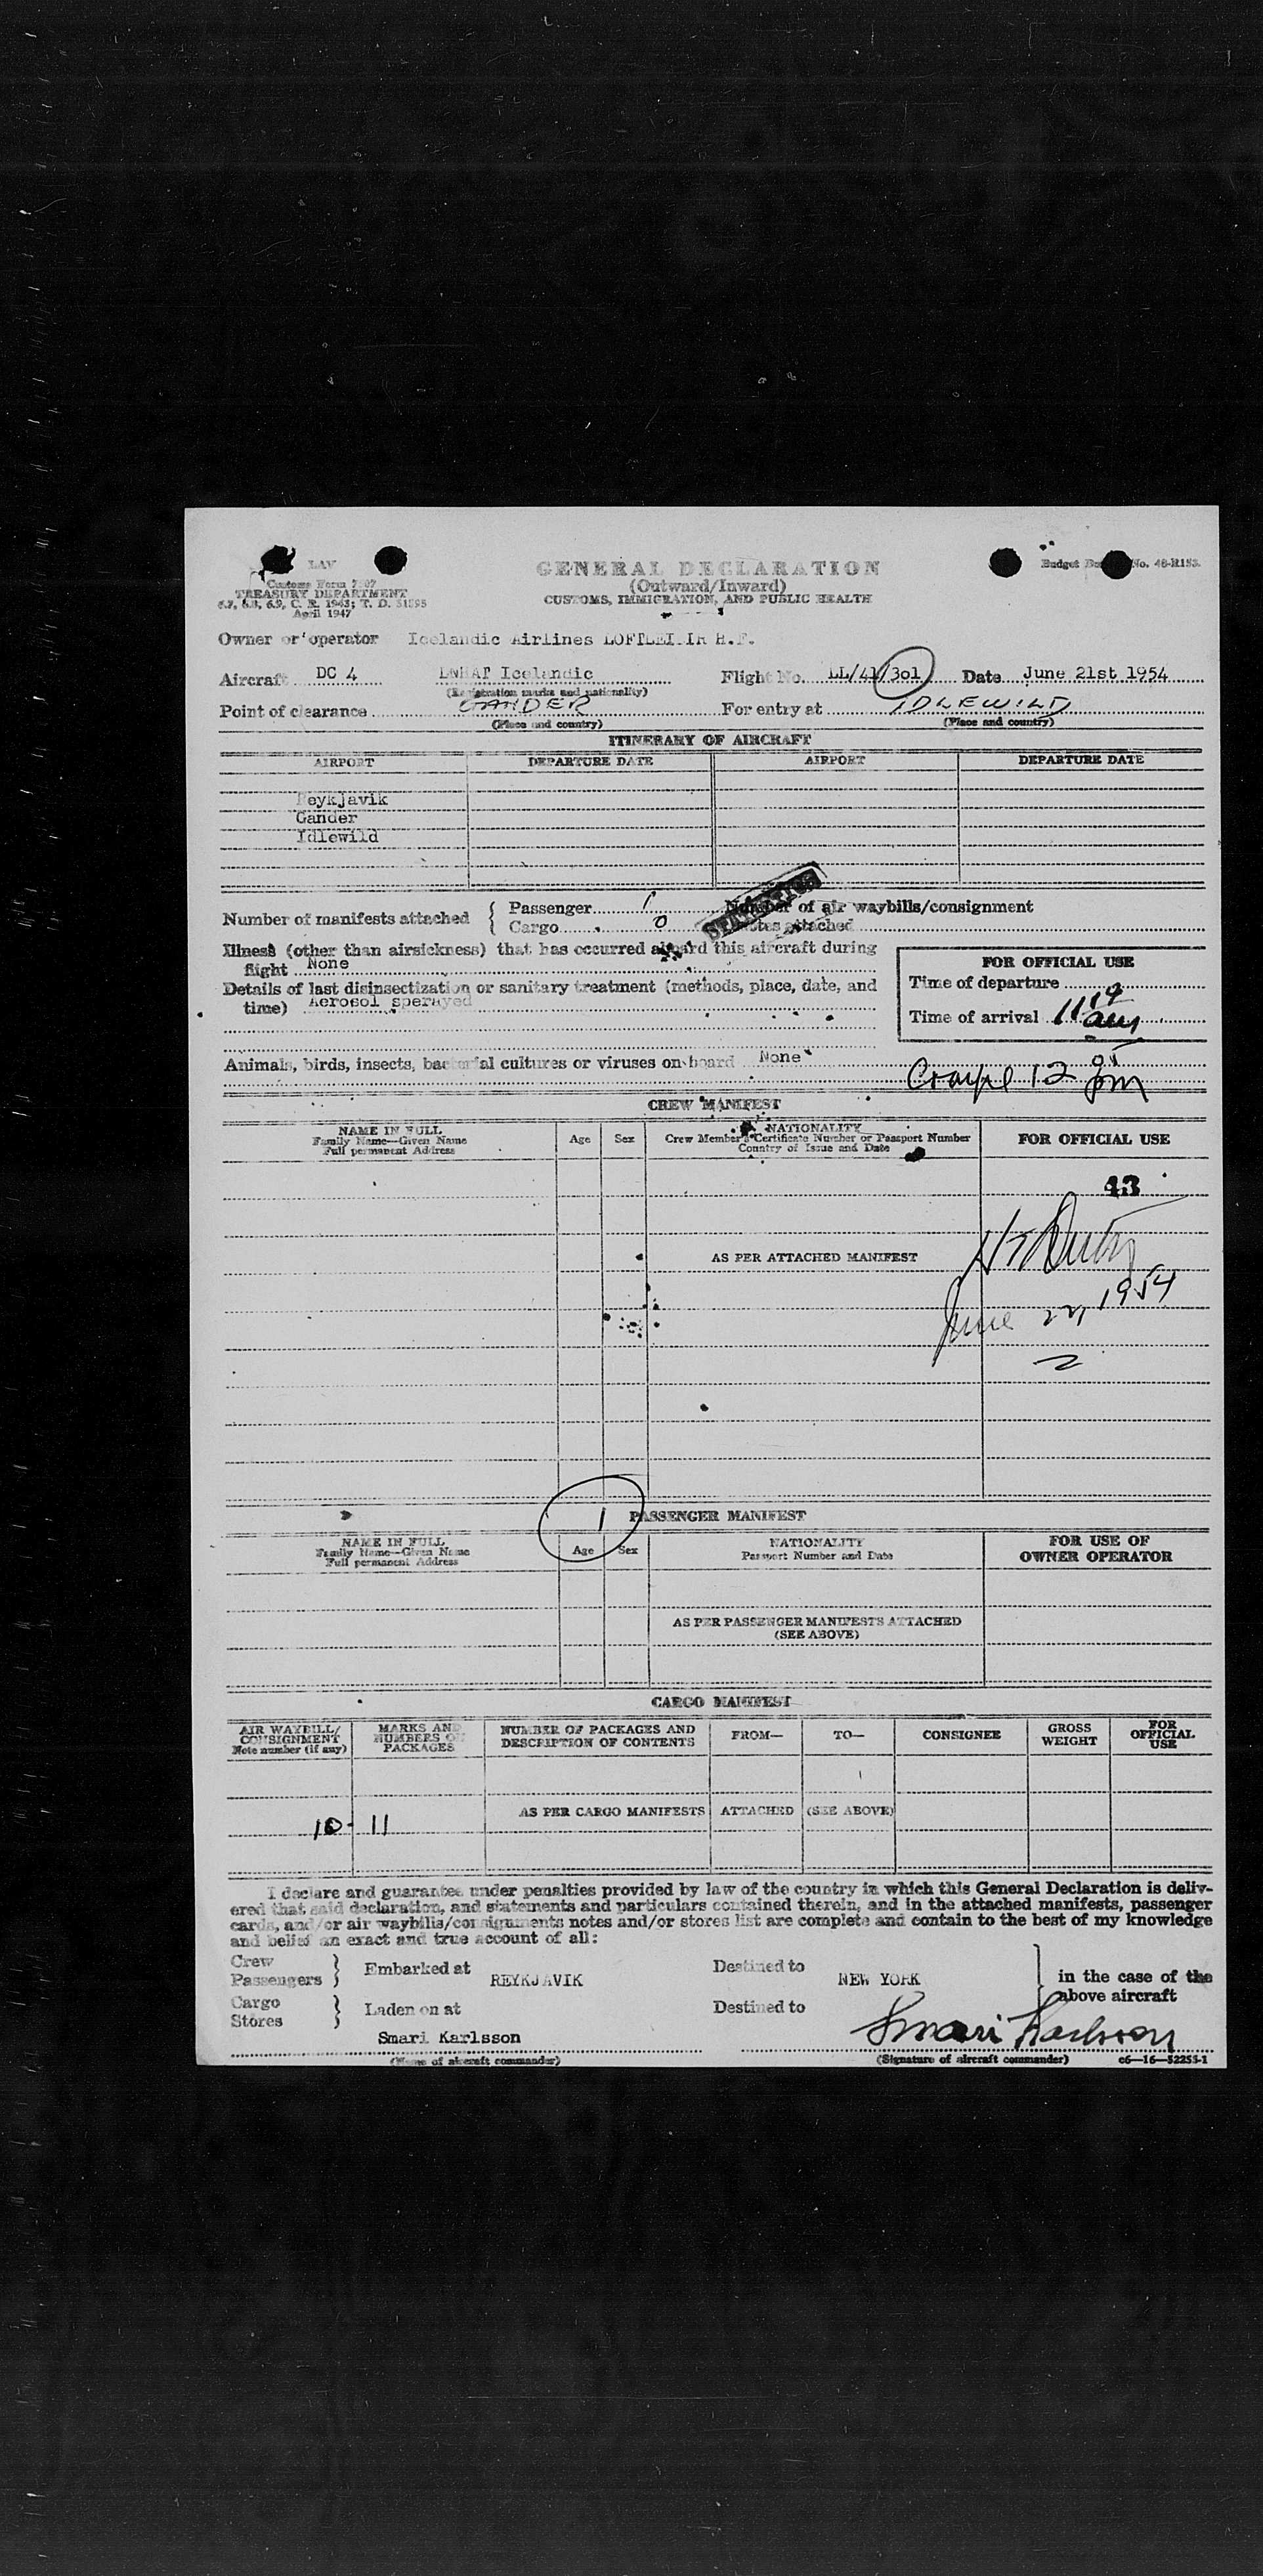 LAV
Customs Form 7507
TREASURY DEPARTMENT
6.7, 6.8, 6.9, C. R. 1943; T. D. 51895
April 1947
GENERAL DECLARATION
(Outward/Inward)
CUSTOMS, IMMIGRATION, AND PUBLIC HEALTH
Budget No. 48-R153.
Owner or operator Icelandic Airlines H.F.
Aircraft DC 4 Icelandic Flight No. LL/41/301 Date June 21st 1954
(Registration marks and nationality)
Point of clearance GANDER For entry at IDLEWILD
(Place and country) (Place and country)
ITINERARY OF AIRCRAFT
AIRPORT DEPARTURE DATE AIRPORT DEPARTURE DATE
Reykjavik
Gander
Idlewild
Number of manifests attached { Passenger 1 Number of air waybills/consignment
Cargo 0 attached
Illness (other than airsickness) that has occurred aboard this aircraft during
flight None
Details of last disinsectization or sanitary treatment (methods, place, date, and
time) Aerosol sperayed
FOR OFFICIAL USE
Time of departure
Time of arrival 11 19 am
Animals, birds, insects, bacterial cultures or viruses on board None
12 05 pm
CREW MANIFEST
NAME IN FULL
Family Name—Given Name
Full permanent Address
Age Sex
NATIONALITY
Crew Member's Certificate Number or Passport Number
Country of Issue and Date
FOR OFFICIAL USE
43
AS PER ATTACHED MANIFEST
June 1954
2
1
PASSENGER MANIFEST
NAME IN FULL
Family Name—Given Name
Full permanent Address
Age Sex
NATIONALITY
Passport Number and Date
FOR USE OF
OWNER OPERATOR
AS PER PASSENGER MANIFESTS ATTACHED
(SEE ABOVE)
CARGO MANIFEST
AIR WAYBILL/
CONSIGNMENT
Note number (if any)
MARKS AND
NUMBERS OF
PACKAGES
NUMBER OF PACKAGES AND
DESCRIPTION OF CONTENTS
FROM— TO— CONSIGNEE
GROSS
WEIGHT
FOR
OFFICIAL
USE
AS PER CARGO MANIFESTS ATTACHED (SEE ABOVE)
10 - 11
I declare and guarantee under penalties provided by law of the country in which this General Declaration is deliv-
ered that said declaration, and statements and particulars contained therein, and in the attached manifests, passenger
cards, and/or air waybills/consignments notes and/or stores list are complete and contain to the best of my knowledge
and belief an exact and true account of all:
Crew
Passengers } Embarked at REYKJAVIK Destined to NEW YORK
Cargo
Stores } Laden on at Destined to
in the case of the
above aircraft
Smari Karlsson Smari Karlsson
(Name of aircraft commander) (Signature of aircraft commander) c6—16—52253-1